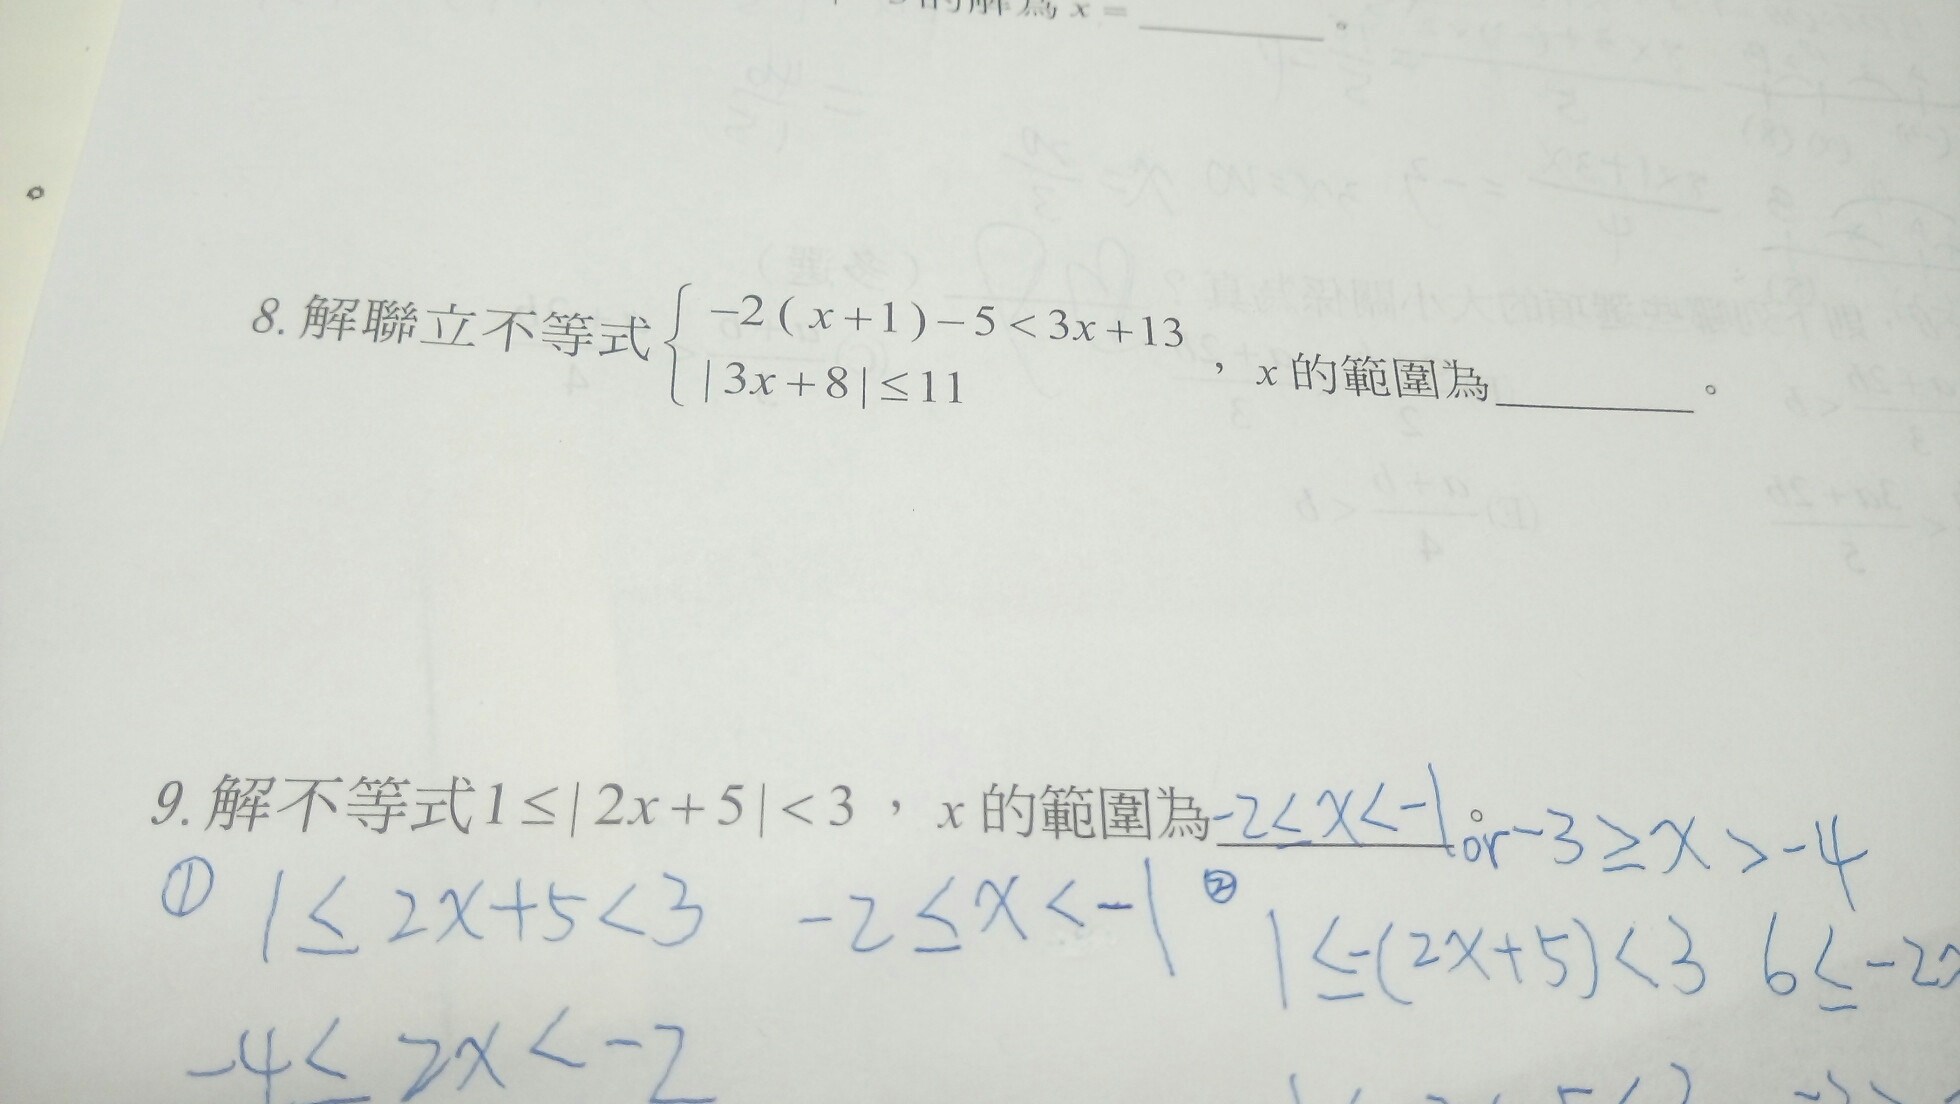 的解為 x = ________ 。
8. 解聯立不等式 { -2 ( x + 1 ) - 5 < 3x + 13
| 3x + 8 | ≤ 11 ， x 的範圍為________ 。
9. 解不等式 1 ≤ | 2x + 5 | < 3 ， x 的範圍為 -2 ≤ x < -1 。 or -3 ≥ x > -4
① 1 ≤ 2x+5 < 3 -2 ≤ x < -1 ② 1 ≤ -(2x+5) < 3 6 ≤ -2x
-4 ≤ 2x < -2